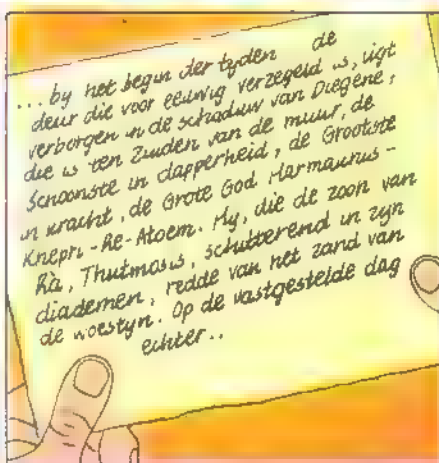 ... by het begin der tyden de
deur die voor eeuwig verzegeld is, ligt
verborgen in de schaduw van Diegene,
die is ten Zuiden van de muur, de
Schoonste in dapperheid, de Grootste
in kracht, de Grote God Harmakhis -
Knepri - Re - Atoem. Hy, die de zoon van
Râ, Thutmosis, schitterend in zyn
diademen, redde van het zand van
de woestyn. Op de vastgestelde dag
echter..